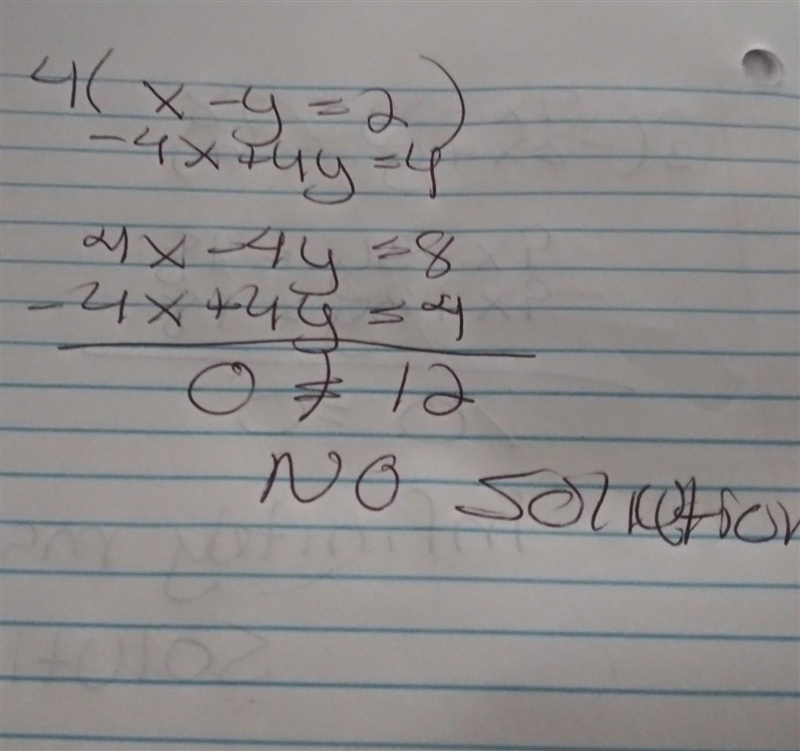 4( x - y = 2 )
-4x + 4y = 4
4x - 4y = 8
-4x + 4y = 4
0 ≠ 12
NO Solution